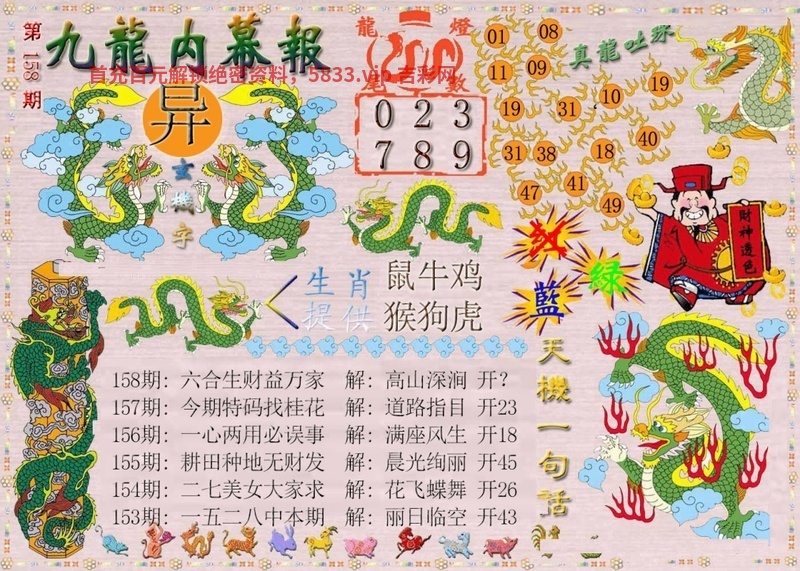 第158期
九龍内幕報
首充百元解锁绝密资料；5833.vip 吉彩网
异
玄機字
龍燈
數
023
789
真龍吐珠
01 08
11 09
19 31 10 19
31 38 18 40
47 41 49
红
綠
藍
財神透色
生肖
提供
鼠牛鸡
猴狗虎
天機一句話
158期: 六合生财益万家 解: 高山深涧 开?
157期: 今期特码找桂花 解: 道路指目 开23
156期: 一心两用必误事 解: 满座风生 开18
155期: 耕田种地无财发 解: 晨光绚丽 开45
154期: 二七美女大家求 解: 花飞蝶舞 开26
153期: 一五二八中本期 解: 丽日临空 开43